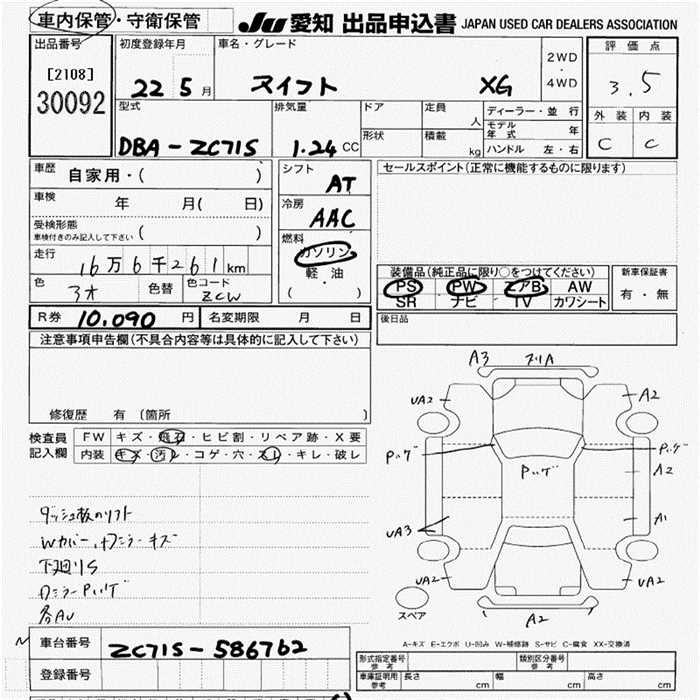 車内保管・守衛保管
JU 愛知 出品申込書 JAPAN USED CAR DEALERS ASSOCIATION
出品番号
[2108]
30092
初度登録年月
22 5月
車名・グレード
スイフト XG
2WD
・
4WD
評価点
3.5
外装 内装
C C
型式
DBA-ZC71S
排気量
1.24 CC
ドア
形状
定員
人
積載
kg
ディーラー・並行
モデル年式 年
ハンドル 左・右
車歴 自家用・( )
車検 年 月( 日)
受検形態
車検付きのみ記入して下さい ( )
走行
16万6千261km
色 色替 色コード
ZCW
シフト
AT
冷房
AAC
燃料
ガソリン
軽・油
( )
セールスポイント(正常に機能するものに限ります)
装備品(純正品に限り○をつけてください)
PS PW エアB AW
SR ナビ TV カワシート
新車保証書
有・無
後日品
R券 10,090 円 名変期限 月 日
注意事項申告欄(不具合内容等は具体的に記入して下さい)
修復歴 有(箇所 )
検査員記入欄
FW キズ・飛石・ヒビ割・リペア跡・X要
内装 キズ・汚レ・コゲ・穴・スレ・キレ・破レ
ダッシュ板のリフト
Wカバー、
キズ
下廻りS
各AU
A3
UA2
A2
Pハゲ
Pハゲ
Pハゲ
A2
UA3
A1
UA2
UA2
A2
スペア
A-キズ E-エクボ U-凹み W-補修跡 S-サビ C-腐食 XX-交換済
車台番号 ZC71S-586762
登録番号
形式指定番号
参考
類別区分番号
参考
車庫証明用
参考
長さ cm 幅 cm 高さ cm